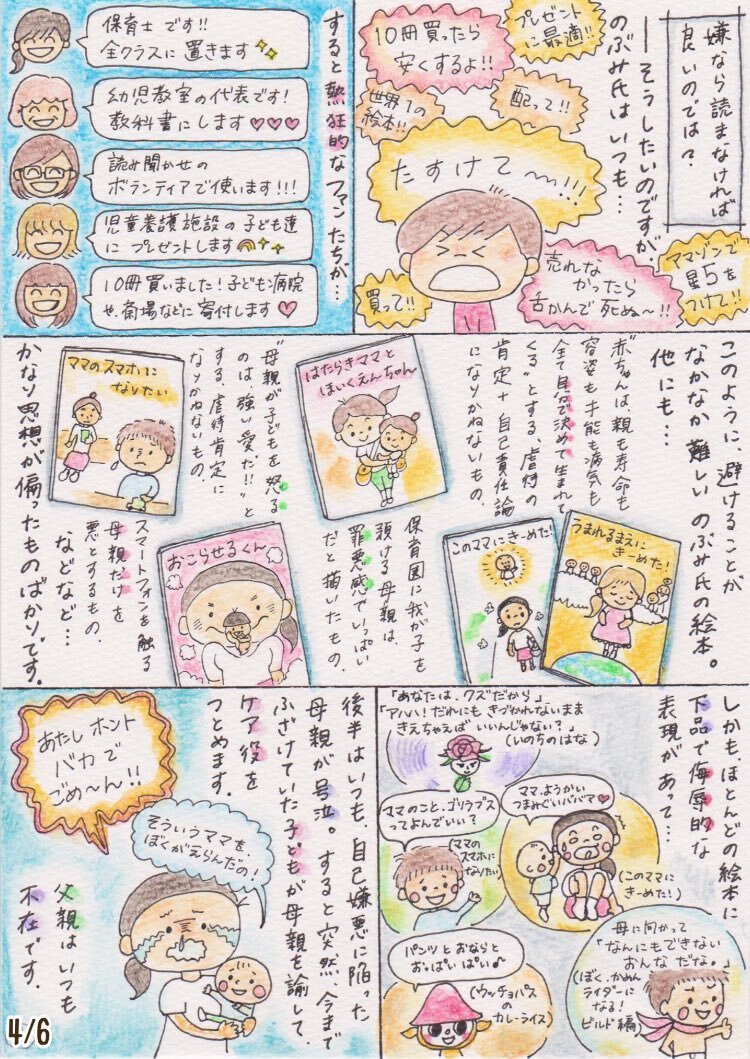 嫌なら読まなければ
良いのでは？
―そうしたいのですが、
のぶみ氏はいつも…
プレゼント
に最適!!
10冊買ったら
安くするよ!!
配って!!
世界1の
絵本!!
たすけて〜!!!
アマゾンで
星5を
つけて!!
売れな
かったら
舌かんで死ぬ〜!!
買って!!
すると熱狂的なファンたちが…
保育士です!!
全クラスに置きます
幼児教室の代表です!
教科書にします♡♡♡
読み聞かせの
ボランティアで使います!!!
児童養護施設の子ども達
にプレゼントします
10冊買いました!子ども病院
や、斎場などに寄付します♡
このように、避けることが
なかなか難しいのぶみ氏の絵本。
他にも…
“赤ちゃんは、親も寿命も
容姿も才能も病気も
全て自分で決めて生まれて
くる”とする、虐待の
肯定+自己責任論
になりかねないもの。
うまれるまえに
きーめた!
このママにきーめた!
はたらきママと
ほいくえんちゃん
保育園に我が子を
預ける母親は、
罪悪感でいっぱい
だと描いたもの。
“母親が子どもを怒る
のは強い愛だ!!”と
する、虐待肯定に
なりかねないもの。
おこらせるくん
ママのスマホに
なりたい
スマートフォンを触る
母親だけを
悪とするもの。
などなど…
かなり思想が偏ったものばかりです。
しかも、ほとんどの絵本に
下品で侮辱的な
表現があって…
「あなたは、クズだから」
「アハハ!だれにもきづかれないまま
きえちゃえばいいんじゃない?」
(いのちのはな)
ママ、ようかい
つまみぐいババア♡
(このママに
きーめた!)
ママのこと、ゴリラブス
ってよんでいい?
(ママの
スマホに
なりたい)
母に向かって
「なんにもできない
おんなだな。」
(ぼく、かめん
ライダーに
なる!
ビルド編)
パンツとおならと
おっぱいぱい♪
(ウッチョパス
カレーライス)
後半はいつも、自己嫌悪に陥った
母親が号泣。すると突然、今まで
ふざけていた子どもが母親を諭して、
ケア役を
つとめます。
あたしホント
バカで
ごめ〜ん!!
そういうママを
ぼくがえらんだの!
父親はいつも
不在です。
4/6